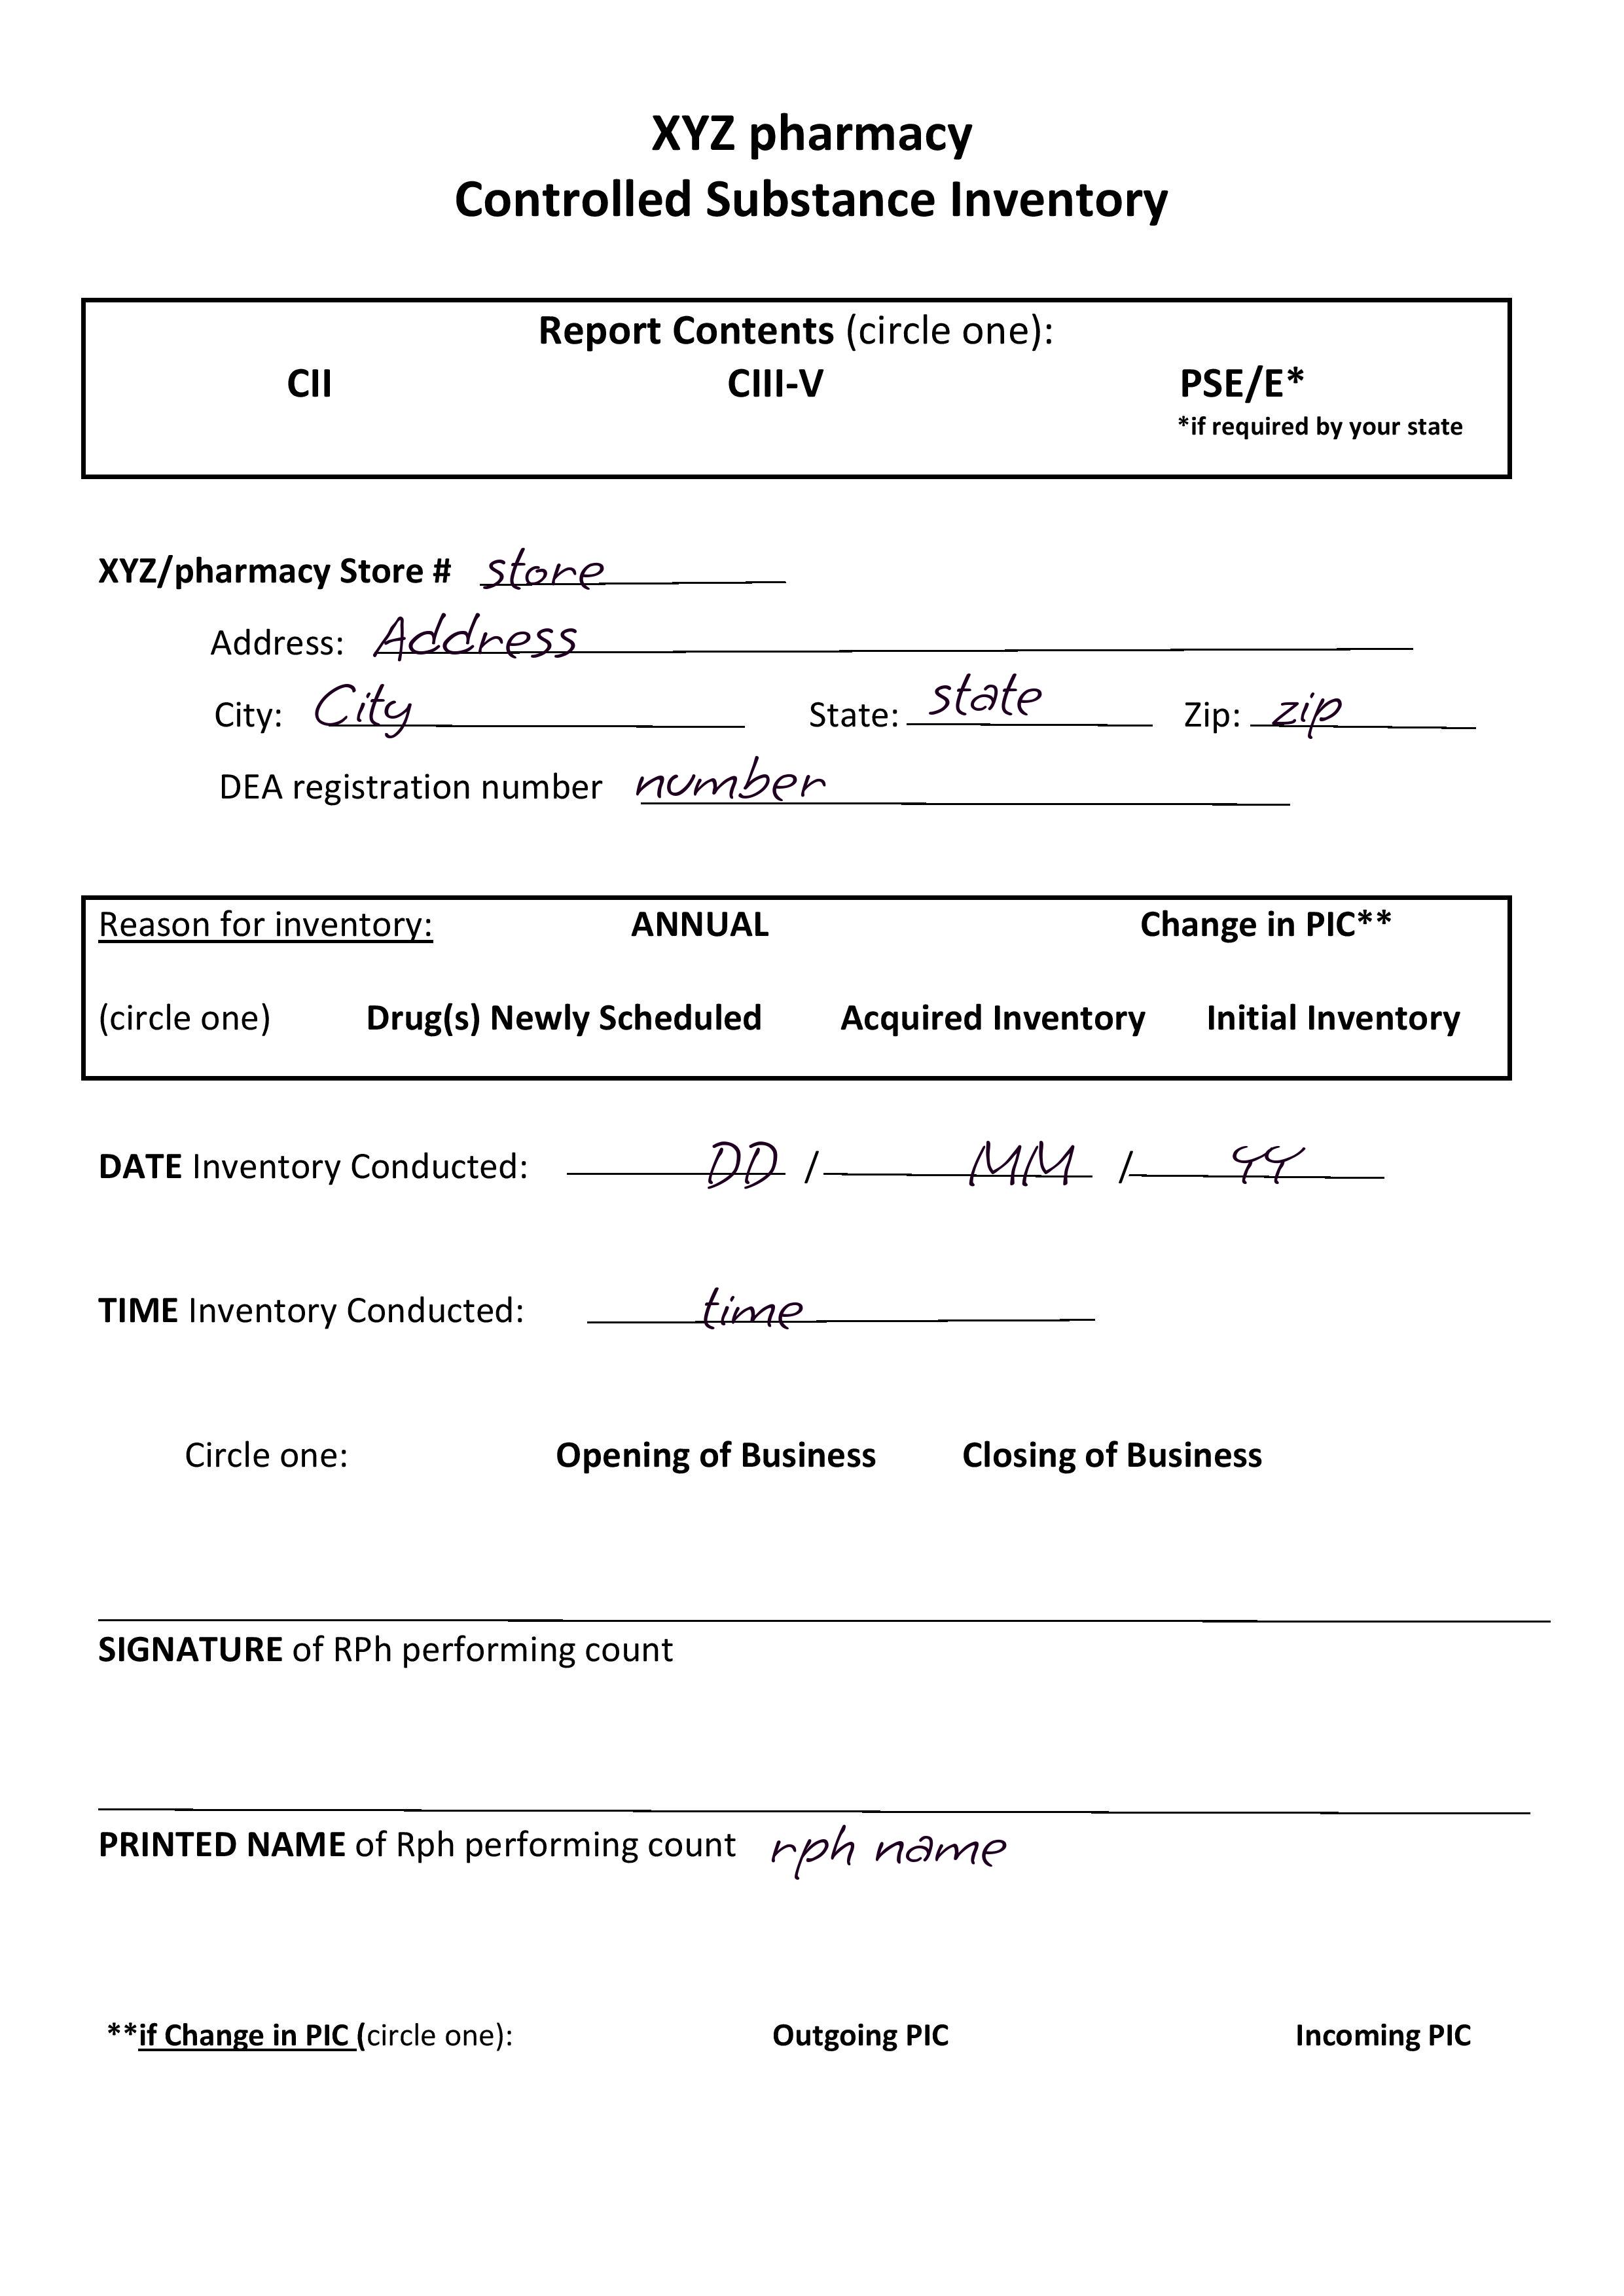 XYZ pharmacy
Controlled Substance Inventory
Report Contents (circle one):
CII CIII-V PSE/E*
*if required by your state
XYZ/pharmacy Store # store
Address: Address
City: City State: state Zip: zip
DEA registration number number
Reason for inventory: ANNUAL Change in PIC**
(circle one) Drug(s) Newly Scheduled Acquired Inventory Initial Inventory
DATE Inventory Conducted: DD / MM / YY
TIME Inventory Conducted: time
Circle one: Opening of Business Closing of Business
SIGNATURE of RPh performing count
PRINTED NAME of Rph performing count rph name
**if Change in PIC (circle one): Outgoing PIC Incoming PIC